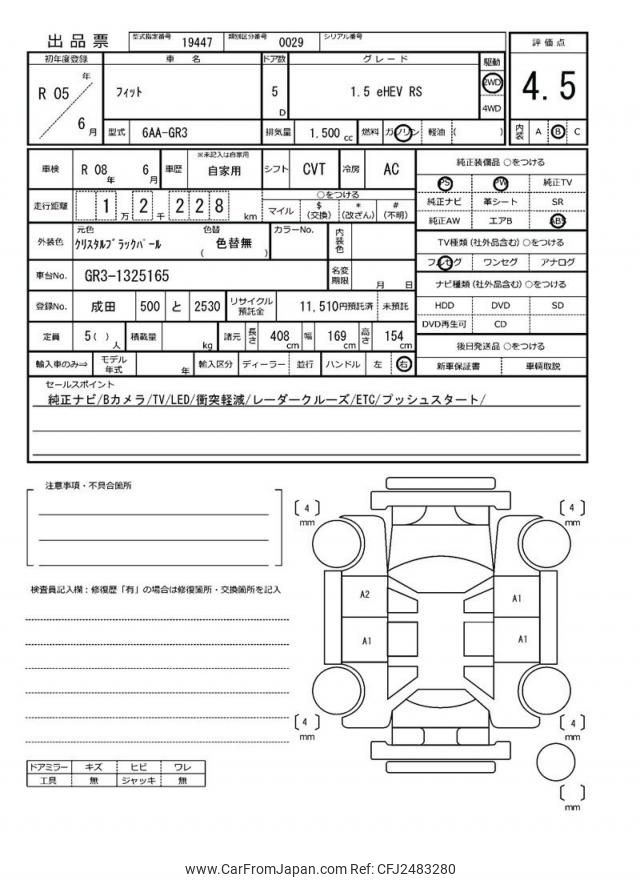 出品票
型式指定番号 19447 類別区分番号 0029 シリアル番号
評価点
4.5
初年度登録 車名 ドア数 グレード 駆動
R 05 年 フィット 5 D 1.5 eHEV RS 2WD
4WD
6 月 型式 6AA-GR3 排気量 1.500 cc 燃料 ガソリン 軽油 ( )
内装 A B C
車検 R 08 年 6 月 車歴 ※未記入は自家用 自家用 シフト CVT 冷房 AC
走行距離 1 万 2 千 2 2 8 km
○をつける
マイル $ (交換) * (改ざん) # (不明)
外装色 元色 クリスタルブラックパール 色替 色替無 ( )
カラーNo. 内装色
車台No. GR3-1325165 名変期限 月 日
登録No. 成田 500 と 2530 リサイクル預託金 11,510円預託済 未預託
定員 5( ) 人 積載量 kg 諸元 長さ 408 cm 幅 169 cm 高さ 154 cm
輸入車のみ⇒ モデル年式 年 輸入区分 ディーラー 並行 ハンドル 左 右
純正装備品 ○をつける
PS PW 純正TV
純正ナビ 革シート SR
純正AW エアB ABS
TV種類(社外品含む)○をつける
フルセグ ワンセグ アナログ
ナビ種類(社外品含む)○をつける
HDD DVD SD
DVD再生可 CD
後日発送品 ○をつける
新車保証書 車輌取説
セールスポイント
純正ナビ/Bカメラ/TV/LED/衝突軽減/レーダークルーズ/ETC/プッシュスタート/
注意事項・不具合箇所
検査員記入欄：修復歴「有」の場合は修復箇所・交換箇所を記入
ドアミラー キズ ヒビ ワレ
工具 無 ジャッキ 無
[ 4 ] mm
[ 4 ] mm
A2
A1
A1
A1
[ 4 ] mm
[ 4 ] mm
[ ] mm
www.CarFromJapan.com Ref: CFJ2483280